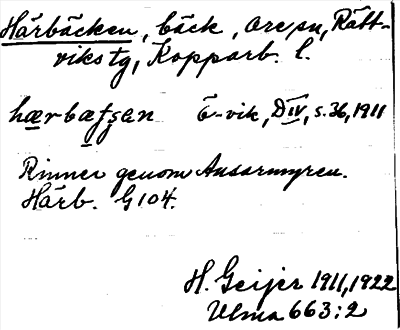 Härbäcken, bäck, Ore sn, Rätt-
viks tg, Kopparb. l.
Ö-vik, D IV, s. 36, 1911
Rinner genom Ansarmyren.
Härb. G 104.
H. Geijer 1911, 1922
Ulma 663:2